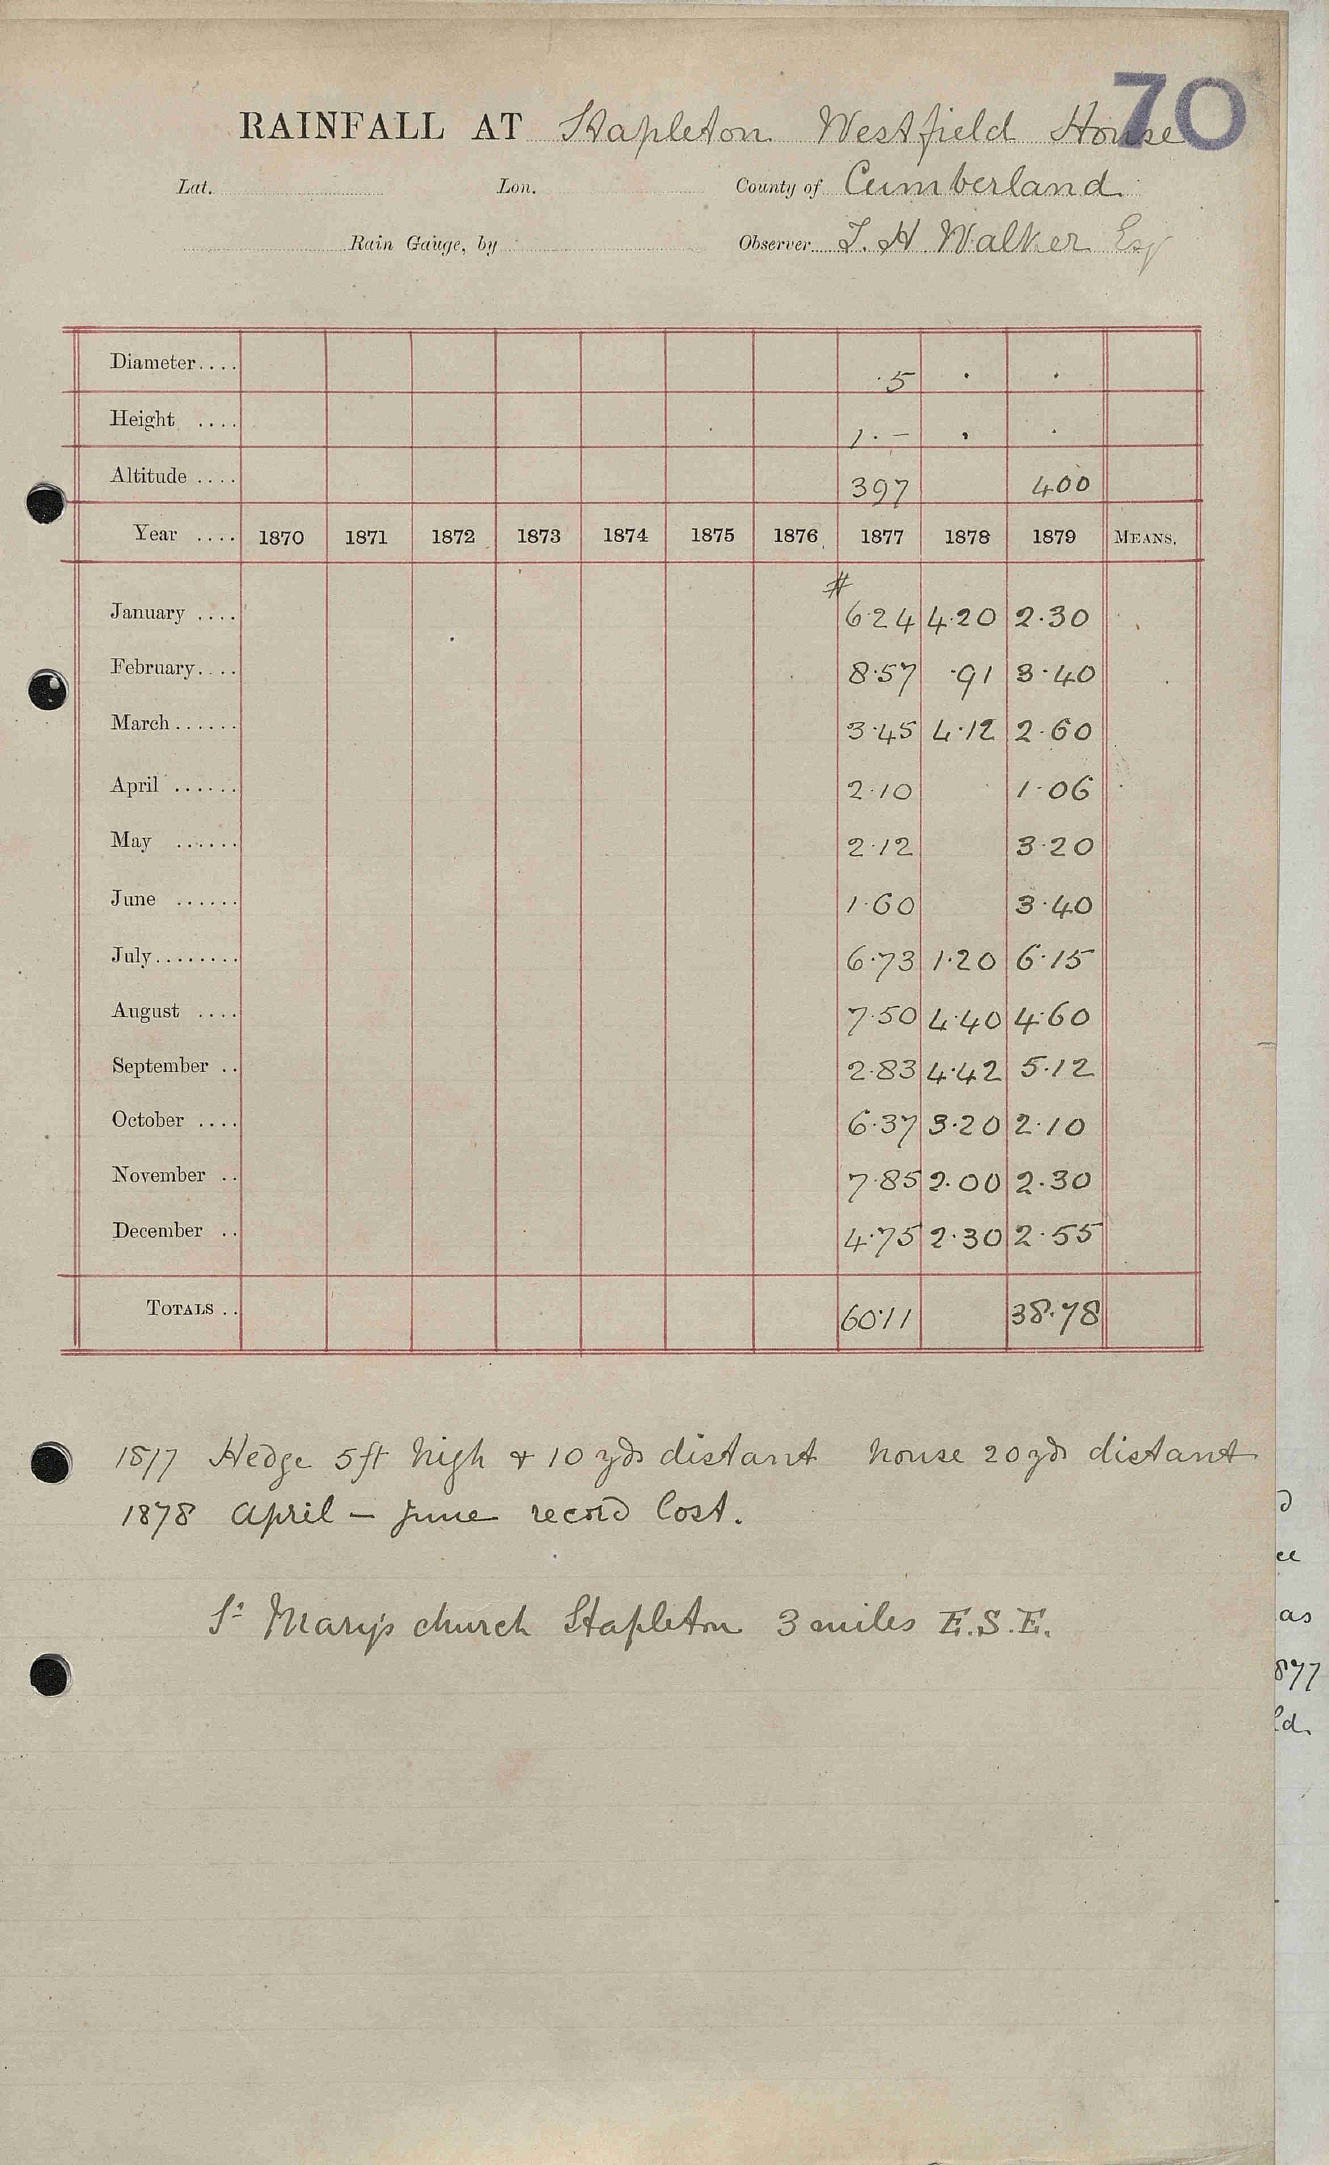 70
RAINFALL AT Stapleton Westfield House
Lat. Lon. County of Cumberland
Rain Gauge, by Observer T. H. Walker Esq
Diameter.... ·5 · ·
Height .... 1·- · ·
Altitude .... 397 400
Year .... 1870 1871 1872 1873 1874 1875 1876 1877 1878 1879 MEANS.
#
January .... 6·24 4·20 2·30
February.... 8·57 ·91 3·40
March...... 3·45 4·12 2·60
April ...... 2·10 1·06
May ...... 2·12 3·20
June ...... 1·60 3·40
July........ 6·73 1·20 6·15
August .... 7·50 4·40 4·60
September .. 2·83 4·42 5·12
October .... 6·37 3·20 2·10
November .. 7·85 2·00 2·30
December .. 4·75 2·30 2·55
TOTALS .. 60·11 38·78
1877 Hedge 5ft high & 10 yds distant house 20 yds distant
1878 April — June record lost.
St Mary's church Stapleton 3 miles E.S.E.
as
877